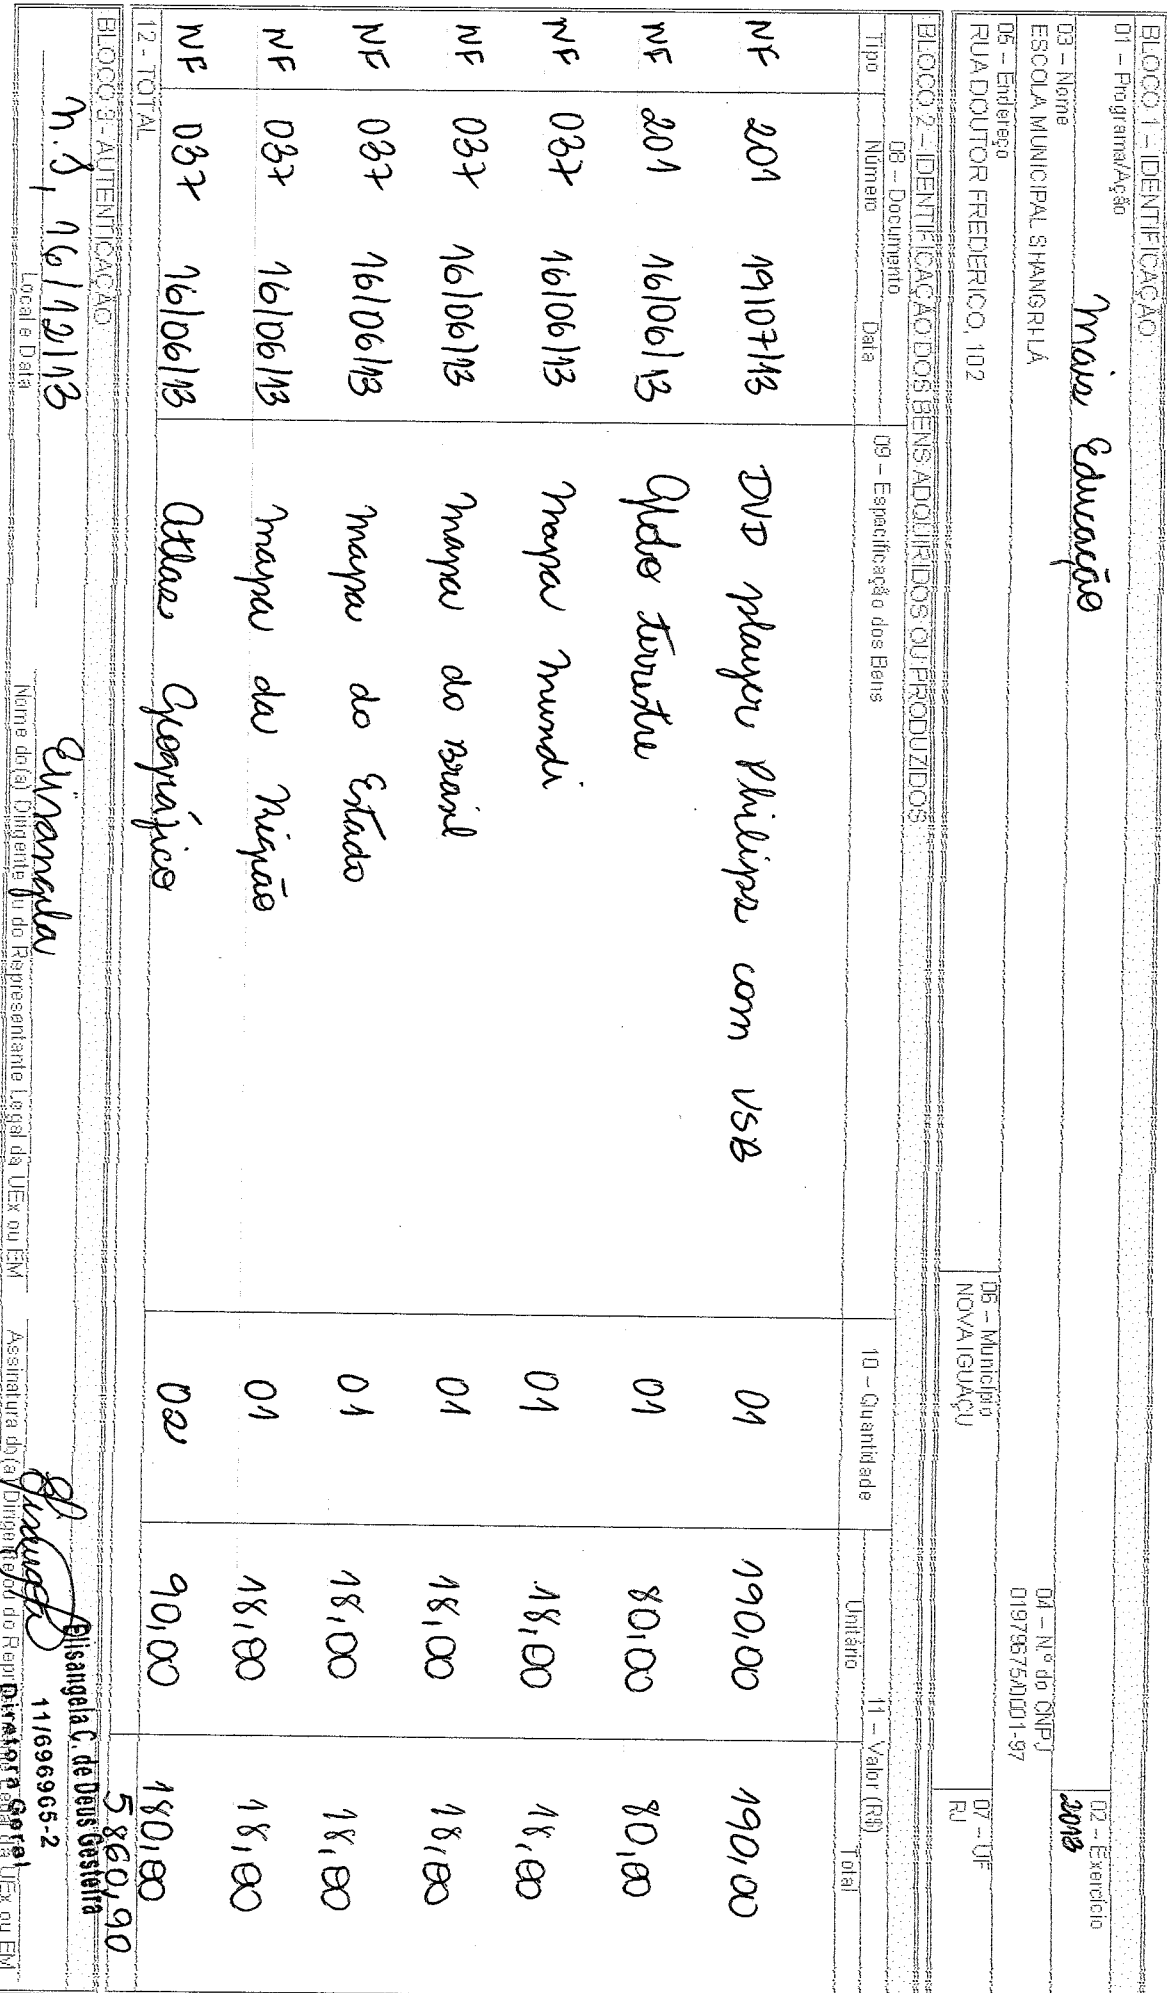 BLOCO 1 – IDENTIFICAÇÃO
01 – Programa/Ação
Mais Educação
02 – Exercício
2013
03 – Nome
ESCOLA MUNICIPAL SHANGRI-LÁ
04 – N.º do CNPJ
01979675/0001-97
05 – Endereço
RUA DOUTOR FREDERICO, 102
06 – Município
NOVA IGUAÇU
07 – UF
RJ
BLOCO 2 – IDENTIFICAÇÃO DOS BENS ADQUIRIDOS OU PRODUZIDOS
08 – Documento 09 – Especificação dos Bens 10 – Quantidade 11 – Valor (R$)
Tipo Número Data Unitário Total
NF 201 19/07/13 DVD player Philips com USB 01 190,00 190,00
NF 201 16/06/13 Globo terrestre 01 80,00 80,00
NF 037 16/06/13 Mapa Mundi 01 18,00 18,00
NF 037 16/06/13 Mapa do Brasil 01 18,00 18,00
NF 037 16/06/13 Mapa do Estado 01 18,00 18,00
NF 037 16/06/13 Mapa da Região 01 18,00 18,00
NF 037 16/06/13 Atlas Geográfico 02 90,00 180,00
12 – TOTAL 5860,90
BLOCO 3 – AUTENTICAÇÃO
n.I, 16/12/13
Elisangela
Elisangela C. de Deus Gesteira
11/696965-2
Diretora Geral
Local e Data
Nome do(a) Dirigente ou do Representante Legal da UEx ou EM
Assinatura do(a) Dirigente ou do Representante Legal da UEx ou EM